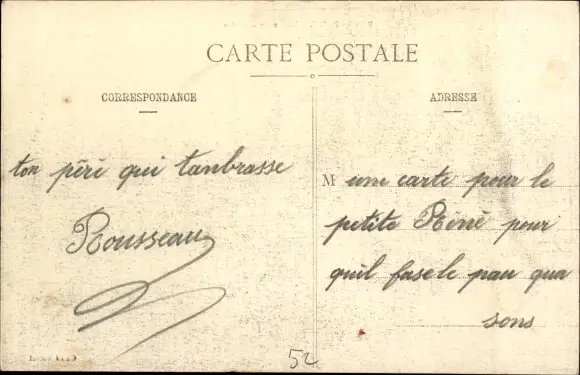 CARTE POSTALE
CORRESPONDANCE
ton péré qui tanbrasse
Rousseau
ADRESSE
M une carte pour le
petite Réné pour
quil fasele pau qua
sons
52